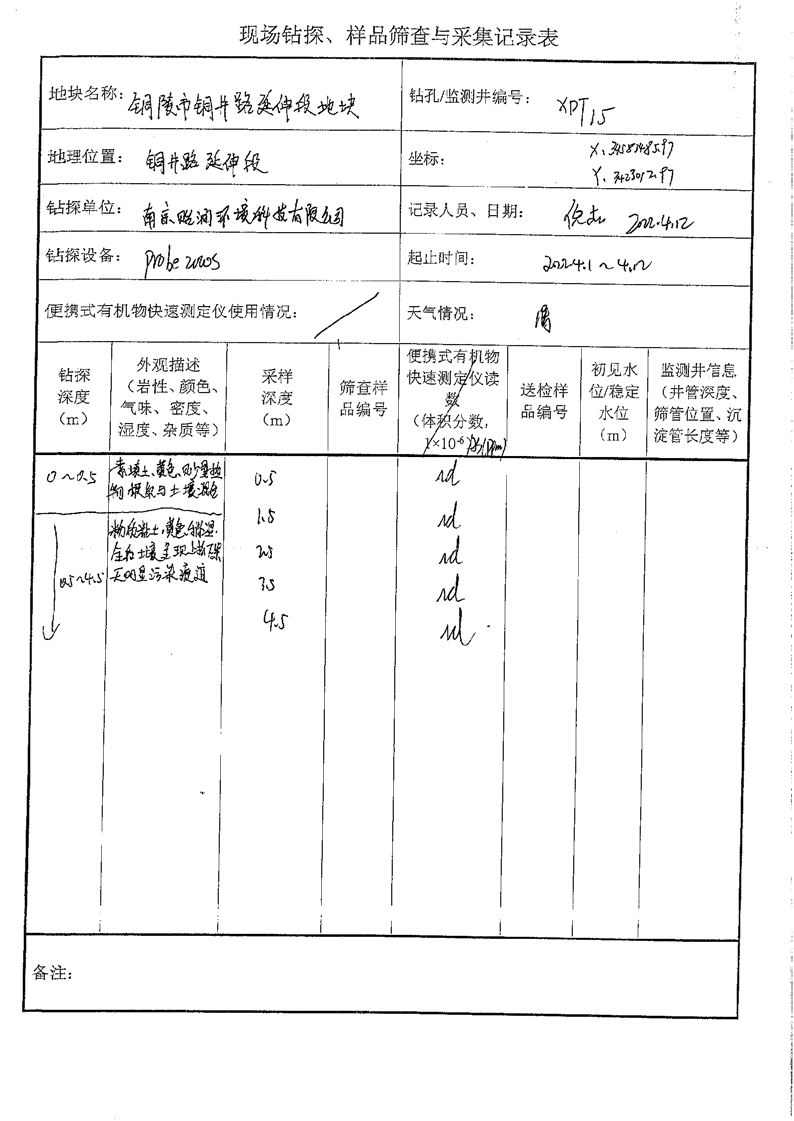 现场钻探、样品筛查与采集记录表
地块名称: 铜陵市铜井路延伸段地块
钻孔/监测井编号: XPT15
地理位置: 铜井路延伸段
坐标:
钻探单位: 南京 润环境科技有限公司
记录人员、日期: 2022.4.12
钻探设备: probe 2000S
起止时间: 2022.4.1~4.12
便携式有机物快速测定仪使用情况: /
天气情况: 晴
钻探
深度
(m)
外观描述
(岩性、颜色、
气味、密度、
湿度、杂质等)
采样
深度
(m)
筛查样
品编号
便携式有机物
快速测定仪读
数
(体积分数,
1×10-6) (ppm)
送检样
品编号
初见水
位/稳定
水位
(m)
监测井信息
(井管深度、
筛管位置、沉
淀管长度等)
0~0.5
素填土,黄色,少量植
物根系与土壤混合
0.5 nd
1.5 nd
0.5~4.5
粉质粘土,黄色,稍湿
无明显污染痕迹
2.5 nd
3.5 nd
4.5 nd
备注: